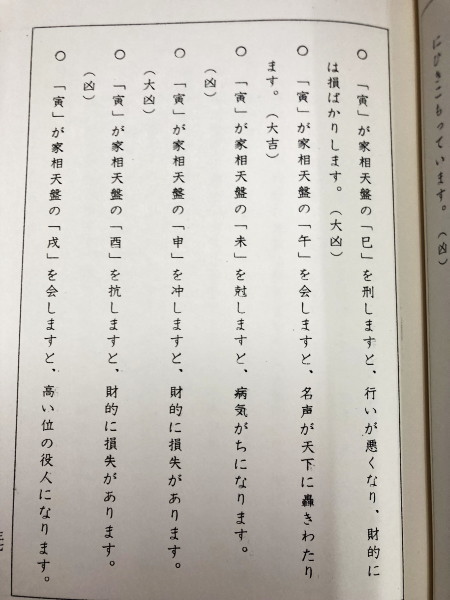 にひきこもっています。(凶)
○ 「寅」が家相天盤の「巳」を刑しますと、行いが悪くなり、財的に
は損ばかりします。(大凶)
○ 「寅」が家相天盤の「午」を会しますと、名声が天下に轟きわたり
ます。(大吉)
○ 「寅」が家相天盤の「未」を尅しますと、病気がちになります。
(凶)
○ 「寅」が家相天盤の「申」を冲しますと、財的に損失があります。
(大凶)
○ 「寅」が家相天盤の「酉」を抗しますと、財的に損失があります。
(凶)
○ 「寅」が家相天盤の「戌」を会しますと、高い位の役人になります。
三七